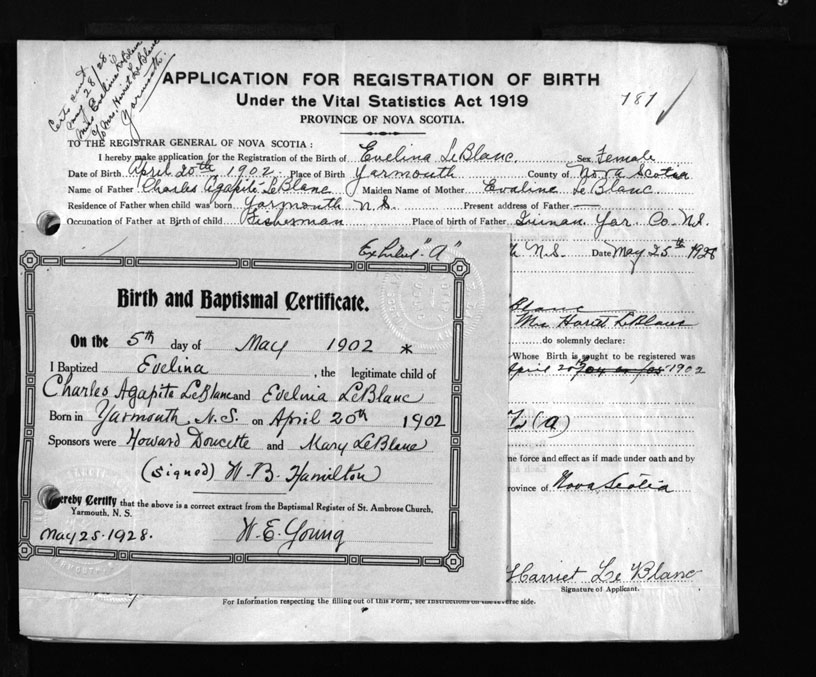 Certs sent
May 28/28
Miss Eveline LeBlanc
c/o Mrs. Harriet LeBlanc
Yarmouth.
APPLICATION FOR REGISTRATION OF BIRTH
181
Under the Vital Statistics Act 1919
PROVINCE OF NOVA SCOTIA.
TO THE REGISTRAR GENERAL OF NOVA SCOTIA :
I hereby make application for the Registration of the Birth of Evelina LeBlanc Sex Female
Date of Birth April 20th 1902 Place of Birth Yarmouth County of Nova Scotia
Name of Father Charles Agapite LeBlanc Maiden Name of Mother Evaline LeBlanc
Residence of Father when child was born Yarmouth N.S. Present address of Father —
Occupation of Father at Birth of child Fisherman Place of birth of Father Yar. Co. N.S.
N.S. Date May 25th 1928
Blanc
Mrs LeBlanc
do solemnly declare:
Whose Birth is sought to be registered was
April 20th 1902
(a)
me force and effect as if made under oath and by
rovince of Nova Scotia
Harriet Le Blanc
Signature of Applicant.
Exhibit "A"
Birth and Baptismal Certificate.
On the 5th day of May 1902 *
I Baptized Evelina , the legitimate child of
Charles Agapite LeBlanc and Evelina LeBlanc
Born in Yarmouth, N.S. on April 20th 1902
Sponsors were Howard Doucette and Mary LeBlanc
(signed) W. B. Hamilton
ereby Certify that the above is a correct extract from the Baptismal Register of St. Ambrose Church,
Yarmouth, N. S.
May 25-1928. W. E. Young
For Information respecting the filling out of this Form, see Instructions on the reverse side.